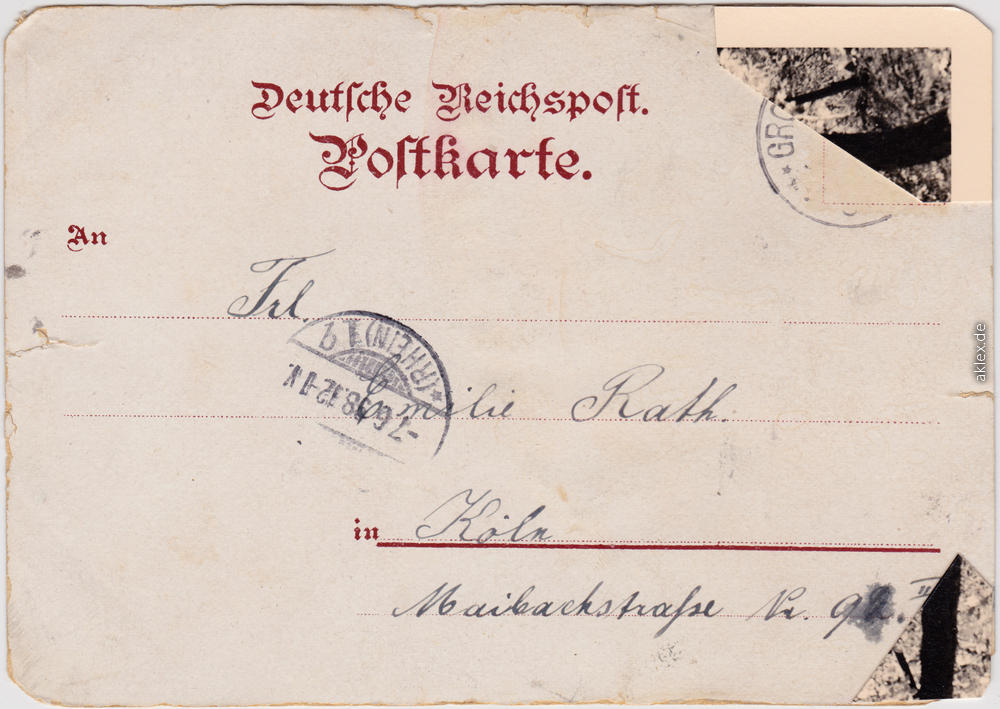 Deutsche Reichspost.
Postkarte.
GRO
An
Frl.
(RHEIN)
-7.6.98.12-1V.
Emilie Rath.
in Köln
Maibachstraße Nr. 92. II
aklex.de